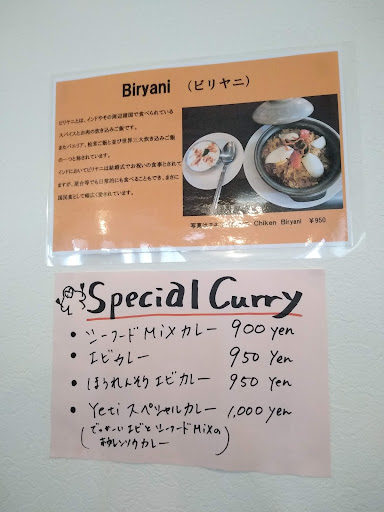 Biryani （ビリヤニ）
ビリヤニとは、インドやその周辺諸国で食べられている
スパイスとお肉の炊き込みご飯です。
またパエリア、松茸ご飯と並び世界三大炊き込みご飯
の一つと称されています。
インドにおいてビリヤニは結婚式でお祝いの食事とされて
ますが、屋台等でも日常的にも食べることもでき、まさに
国民食として幅広く愛されています。
写真は Chiken Biryani ￥950
Special Curry
• シーフードMixカレー 900 yen
• エビカレー 950 yen
• ほうれんそうエビカレー 950 yen
• Yeti スペシャルカレー 1,000 yen
(でっかーいエビとシーフードMixの
ホウレンソウカレー)